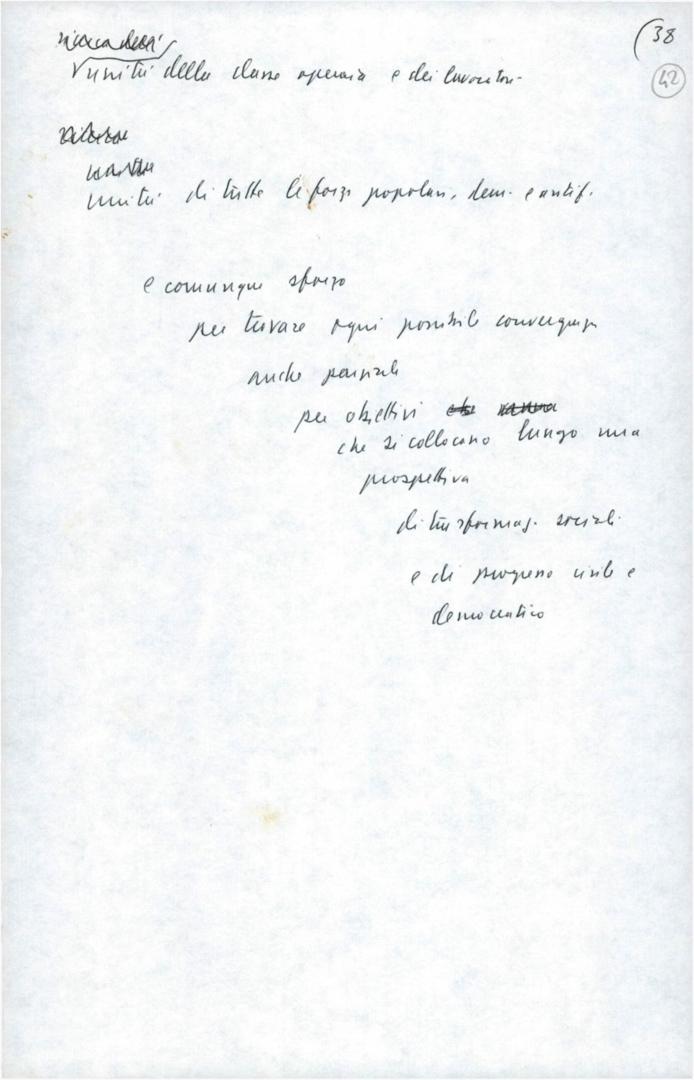 (38
42
unità della classe operaia e dei lavoratori
unità di tutte le forze popolari, dem. e antif.
e comunque sforzo
per trovare ogni possibile convergenza
anche parziale
per obiettivi
che si collocano lungo una
prospettiva
di trasformaz. sociali
e di progresso civile e
democratico